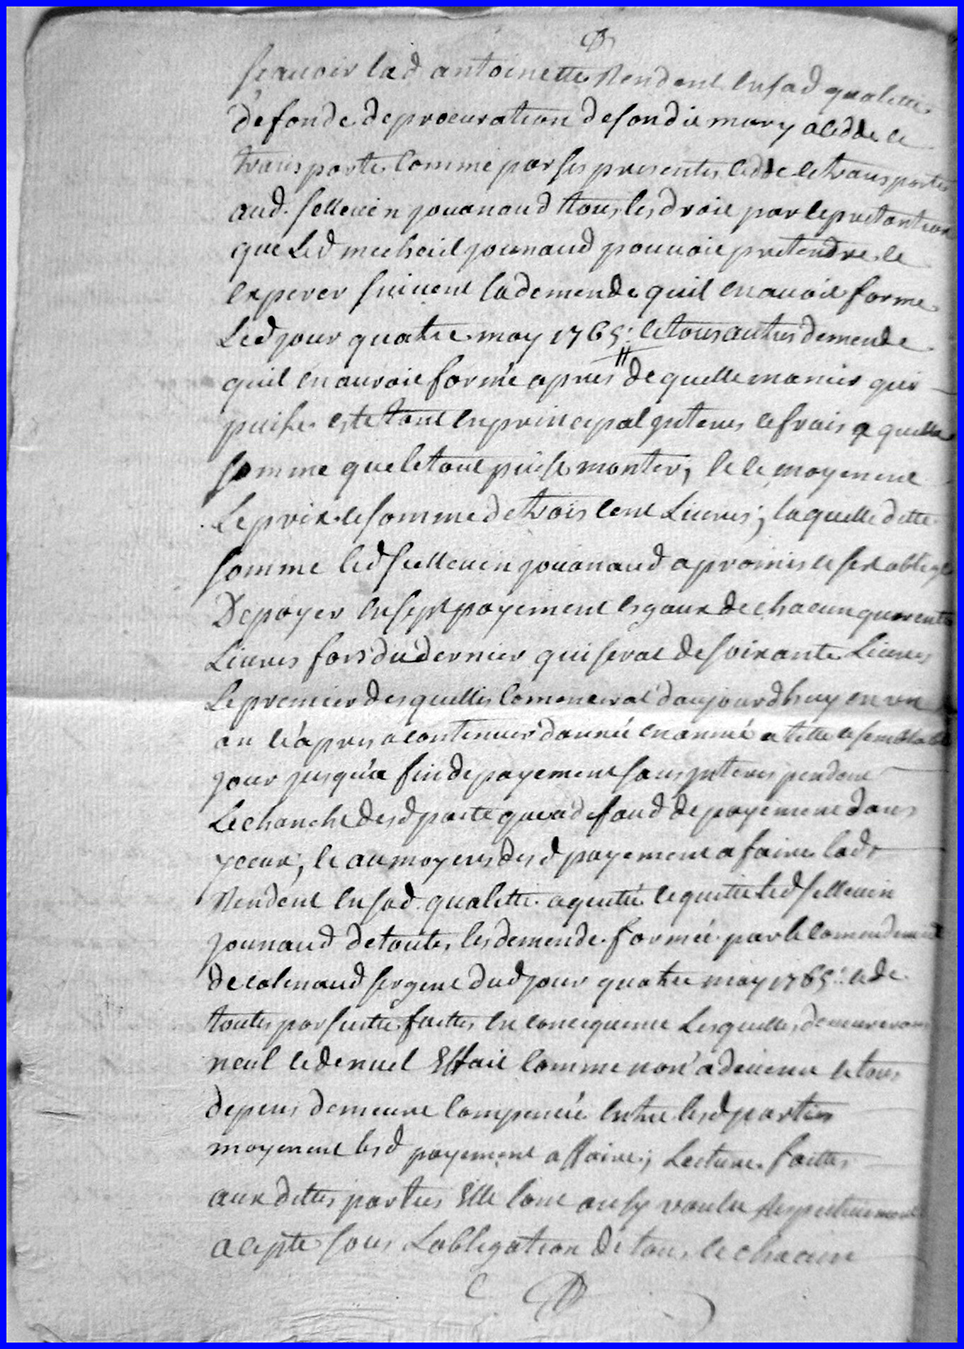 scavoir lad antoinette Rendent en sad qualitté
defondé de procuration de son dit mary a ceddé et
transporté comme par ses presentes cedde et transporte
aud. sellevein jouanaud tous les droit par et pretantion
que led micheil jounaud pouvoit pretendre et
experer suivent la demende quil en avoit forme
Led jour quatre may 1765: et tous autres demende
quil en auroit formé apres de quelle manier qui
puisse estre tant en principal jnteres et frais a quelle
somme que le tout puisse monter; et ce moyenent
le prix et somme de trois cent Livres; laquelle ditte
somme led sellevein jouanaud a promis et sest obligé
De payer en sept payement esgaux de chacun quarente
Livres fors du dernier qui serat de soixante Livres
le premier desquelles comencerat d'aujourdhuy en un
an et apres a continuer d'année en année a telle et semblable
jour jusqu'a fin de payement sans jnteres pendent
Lechanche desd pacte que a defaud de payement dans
yceux; et au moyens desd payement a faire lade
Rendent en sad. qualitté a quitté et quitte led sellevein
jounaud de toutes les demende formée par le comendement
de colinaud sergent dud jour quatre may 1765: et de
toutes poursuitte faittes en concequence Lesquelles demeureront
neul et de nuel Effait comme non advenue et tous
depens demeure compencée entre lesd parties
moyenent lesd payement affaire; Lecture faitte
aux dittes parties Elle l'ont ainsy voulu respectivement
acepté sous Lobligation de tous et chacun